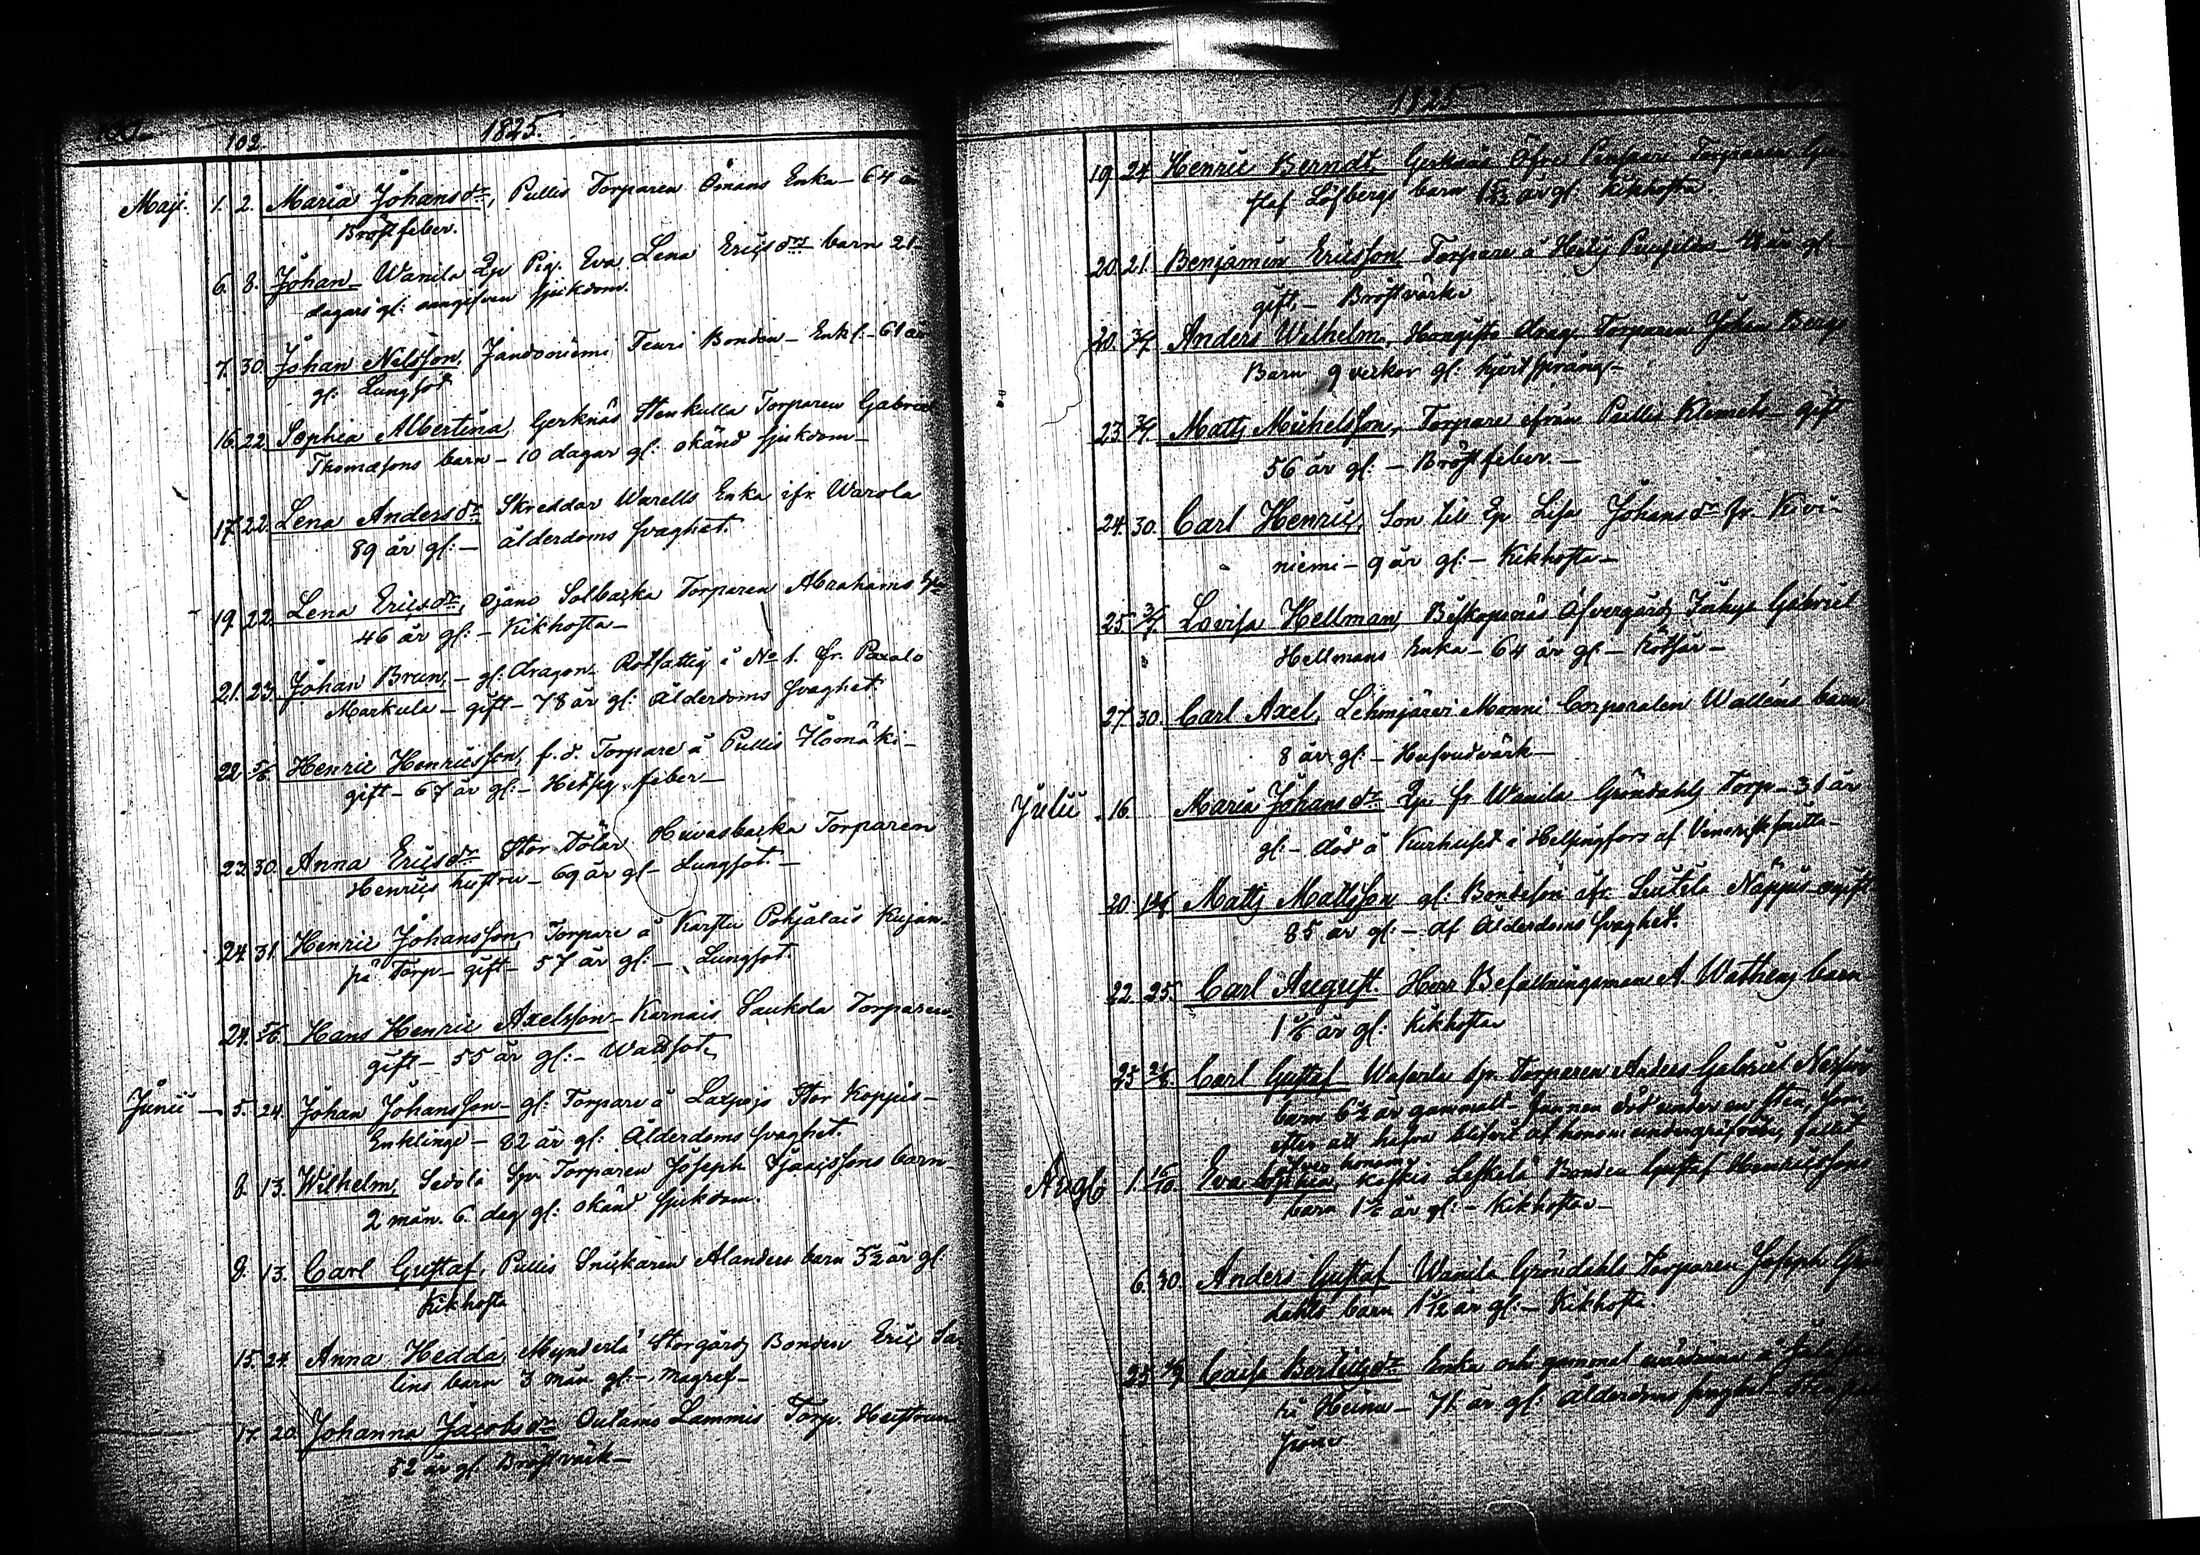 102. 1825.
Maji. 1. 2. Maria Johansdr, Pullis Torparen Ömans Enka - 64 år
Bröstfeber.
6. 8. Johan - Wanila Qp Pig. Eva Lena Ericsdrs barn 21
dagars gl: oangifven sjukdom.
7. 30. Johan Nilsson, Jandoniemi Teuri Bonden - Enkl. - 61 år
gl: Lungsot
16. 22. Sophia Albertina, Gerknäs Stenkulla Torparen Gabriel
Thomæsons barn - 10 dagar gl: okänd sjukdom -
17. 22. Lena Andersdr, Skreddar Warells Enka ifr. Warola
89 år gl: - ålderdoms svaghet.
19. 22. Lena Ericsdr, Ojamo Solbacka Torparen Abrahams
46 år gl: - Kikhosta -
21. 23. Johan Brun, - gl: dragon - Rotfattig i No 1. fr. Paxalo
Markula - gift - 78 år gl: Ålderdoms svaghet.
22. 5/6 Henric Henricsson, f.d. Torpare å Pullis Ilomäki -
gift - 67 år gl: - Hetsig feber -
23. 30. Anna Ericsdr Stor Tötar Huvasbacka Torparen
Henrics hustru - 69 år gl - Lungsot. -
24. 31. Henric Johansson, Torpare å Karstu Pohjalais Kujan-
pä Torp - gift - 57 år gl: - Lungsot.
24. 5/6. Hans Henric Axelsson - Karnais Laukola Torparen
gift - 55 år gl: - Wattsot.
Junii - 5. 24. Johan Johansson - gl: Torpare å Laxpojo Stor Koppis -
Enklinge - 82 år gl: Ålderdoms svaghet.
8. 13. Wilhelm, Sedola Torparen Joseph Isacssons barn
2 mån. 6. dag gl: okänd sjukdom.
8. 13. Carl Gustaf, Pullis Snickaren Alanders barn 5 1/2 år gl.
Kikhosta
15. 24. Anna Hedda, Mynderlä Storgårds Bonden Eric Sa-
lins barn 3 mån gl: - Magref -
17. 20. Johanna Jacobsdr Outamo Lammis Torp. Hustrun
52 år gl Bröstvärk -
1825
19. 24. Henric Berndt, Gerknäs Öfre Torparen
staf Löfbergs barn år gl. Kikhosta.
20. 21. Benjamin Ericsson Torpare å år gl -
gift. - Bröstvärk
20. 3/7 Anders Wilhelm, Hongisto drag. Torparen Johan Bergs
Barn 9 veckor gl: hjertsprång -
23. 3/7. Matts Michelsson, Torpare ifrån Pullis Klemets - gift
56 år gl: - Bröstfeber. -
24. 30. Carl Henric, Son till Lisa Johansdr fr. Kivi-
niemi - 9 år gl: - Kikhosta -
25. 3/7. Lovisa Hellman, Biskopsnäs Öfvergårds Inhys Gabriel
Hellmans Enka - 64 år gl - Rötsår -
27. 30. Carl Axel, Lehmjärvi Manni Corporalen Walléns barn
8 år gl: - Hufvudvärk -
Julii. 16. Maria Johansdr fr Wanila Gröndahls Torp - 31 år
gl: - död å Kurhuset i Helsingfors af Venerisk smitta -
20 Matts Mattsson gl: Bondeson ifr. Suitila Näppis - ogift
85 år gl: - af Ålderdoms svaghet.
22. 25. Carl August. Herr Befallningsman A. Wathens barn
1 1/6 år gl: Kikhosta
25 Carl Gustaf Torparen Anders Gabriel
barn 6 1/2 år gammalt - funnen död under en sten, som
efter att hafva blifvit af honom undergräfven, fallit
öfver honom
Aug. 1. Eva Sophia, Koskis Leskelä Bonden Gustaf Henricssons
barn 1 år gl: - Kikhosta -
6. 30. Anders Gustaf Wanila Gröndahls Torparen Joseph Grön-
dahls barn 1 år gl: - Kikhosta.
25. Caisa Bertilsdr Enka och gammal
Heinu - 71 år gl: ålderdoms svaghet